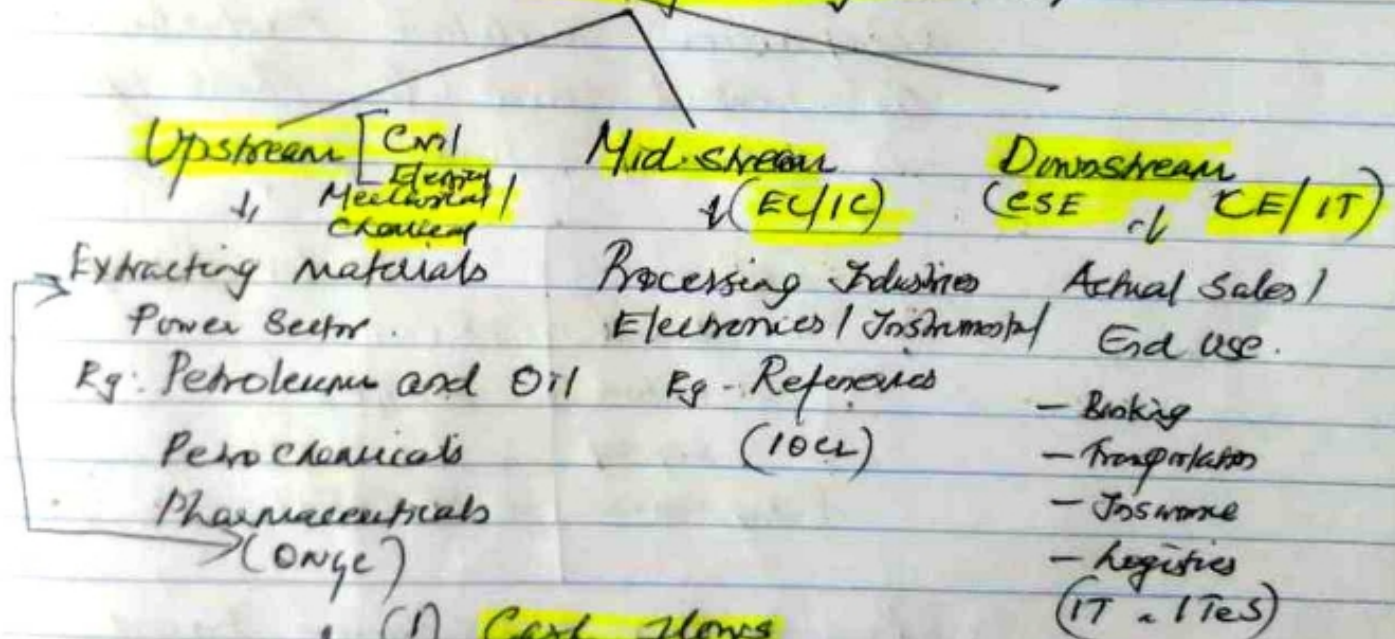 Upstream [Civil
Mechanical /
Chemical
Extracting materials
Power Sector.
Eg: Petroleum and Oil
Petro chemicals
Pharmaceuticals
(ONGC)
Mid.stream
(EC/IC)
Processing Industries
Electronics / Instrumental
Eg - Referenies
(IOCL)
Downstream
(CSE CE/IT)
Actual Sales /
End use.
- Banking
- Transportation
- Insurance
- Logistics
(IT - ITeS)
(1) Cash flows